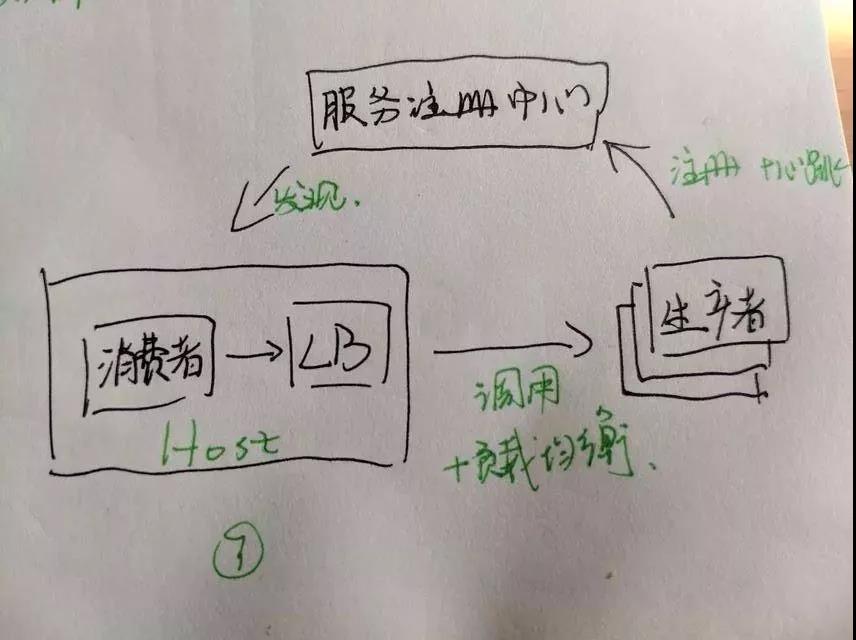 服务注册中心
注册 +心跳
发现.
生产者
消费者
LB
Host
调用
+负载均衡、